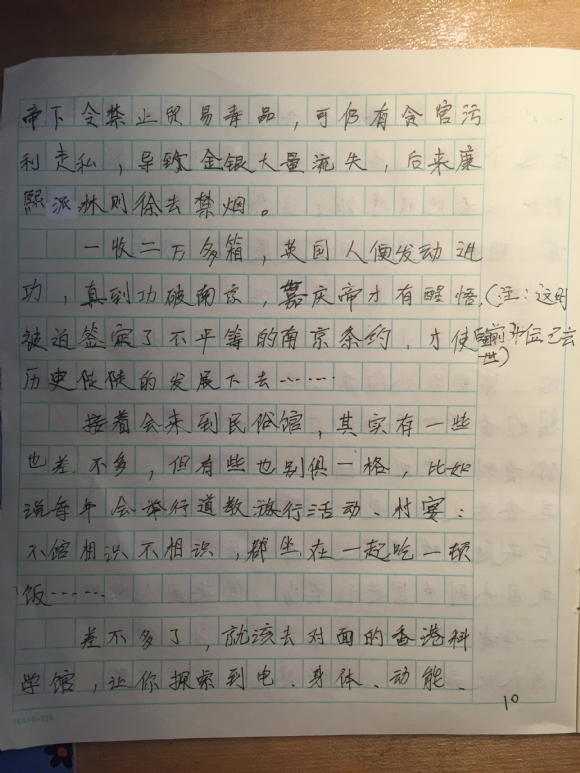 帝下令禁止贸易毒品，可仍有贪官污
利走私，导致金银大量流失，后来康
熙派林则徐去禁烟。
一收二万多箱，英国人便发动进
功，真到功破南京，嘉庆帝才有醒悟，(注：这时
被迫签定了不平等的南京条约，才使
前位已去
世)
历史陡陡的发展下去……
接着会来到民俗馆，其实有一些
也差不多，但有些也别俱一格，比如
说每年会举行道教游行活动、村宴：
不管相识不相识，都坐在一起吃一顿
饭……
差不多了，就该去对面的香港科
学馆，让你探索到电、身体、动能、
10